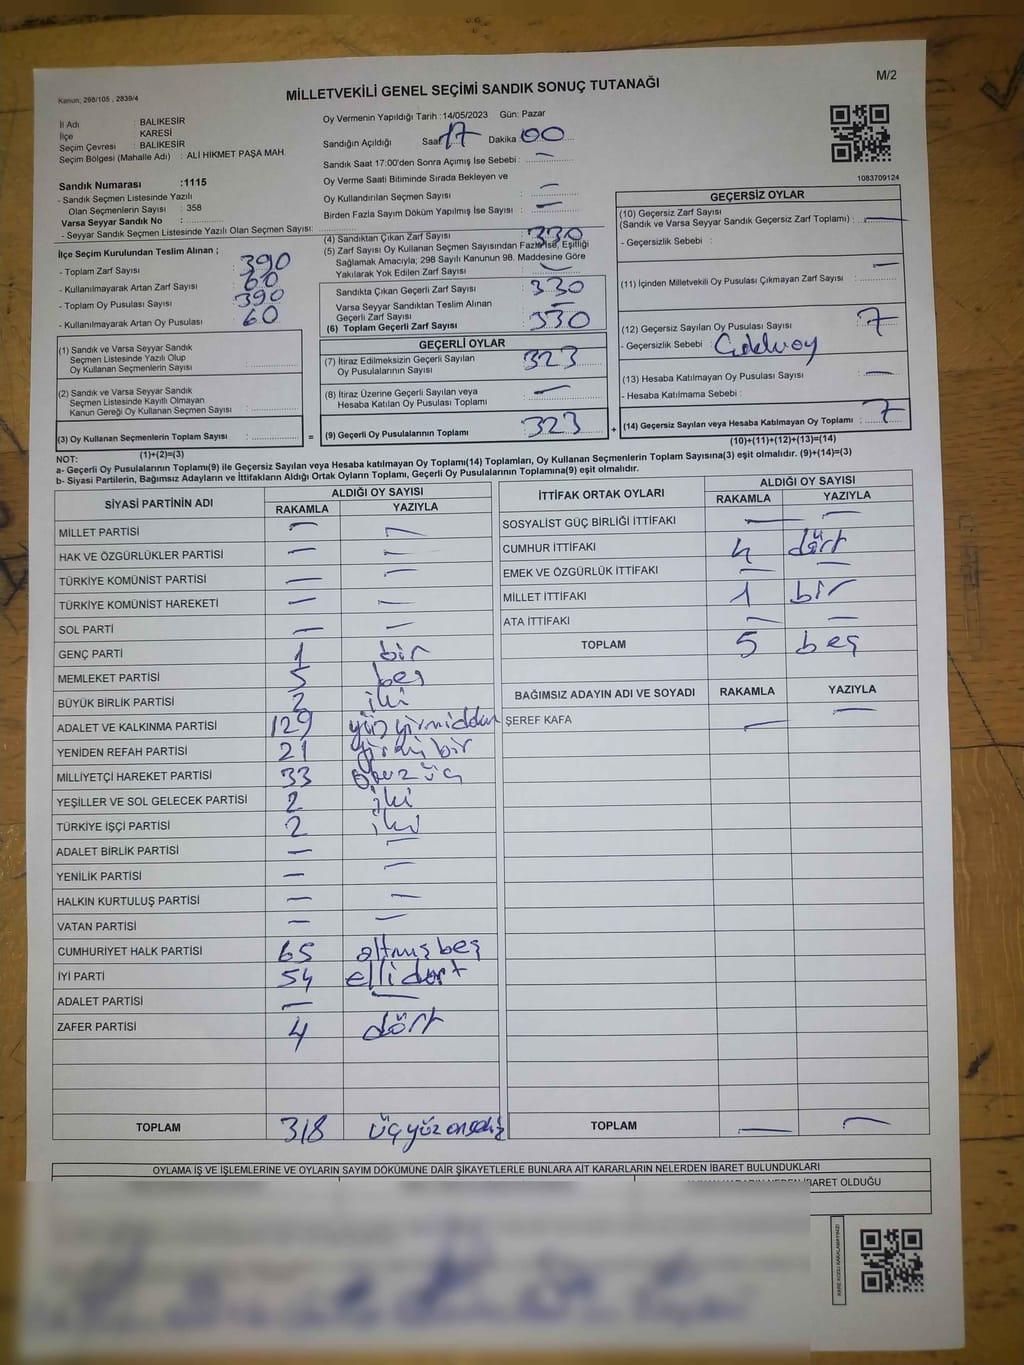 Kanun, 298/105 , 2839/4
MİLLETVEKİLİ GENEL SEÇİMİ SANDIK SONUÇ TUTANAĞI
M/2
İl Adı : BALIKESİR
İlçe : KARESİ
Seçim Çevresi : BALIKESİR
Seçim Bölgesi (Mahalle Adı) : ALİ HİKMET PAŞA MAH.
Sandık Numarası :1115
- Sandık Seçmen Listesinde Yazılı
Olan Seçmenlerin Sayısı : 358
Varsa Seyyar Sandık No :
- Seyyar Sandık Seçmen Listesinde Yazılı Olan Seçmen Sayısı:
İlçe Seçim Kurulundan Teslim Alınan ;
- Toplam Zarf Sayısı : 390
- Kullanılmayarak Artan Zarf Sayısı : 60
- Toplam Oy Pusulası Sayısı : 390
- Kullanılmayarak Artan Oy Pusulası : 60
(1) Sandık ve Varsa Seyyar Sandık
Seçmen Listesinde Yazılı Olup
Oy Kullanan Seçmenlerin Sayısı :
(2) Sandık ve Varsa Seyyar Sandık
Seçmen Listesinde Kayıtlı Olmayan
Kanun Gereği Oy Kullanan Seçmen Sayısı :
(3) Oy Kullanan Seçmenlerin Toplam Sayısı :
(1)+(2)=(3)
Oy Vermenin Yapıldığı Tarih :14/05/2023 Gün: Pazar
Sandığın Açıldığı Saat 17 Dakika 00
Sandık Saat 17:00'den Sonra Açımış İse Sebebi : —
Oy Verme Saati Bitiminde Sırada Bekleyen ve
Oy Kullandırılan Seçmen Sayısı : —
Birden Fazla Sayım Döküm Yapılmış İse Sayısı : —
(4) Sandıktan Çıkan Zarf Sayısı : 330
(5) Zarf Sayısı Oy Kullanan Seçmen Sayısından Fazla İse, Eşitliği
Sağlamak Amacıyla; 298 Sayılı Kanunun 98. Maddesine Göre
Yakılarak Yok Edilen Zarf Sayısı : —
Sandıkta Çıkan Geçerli Zarf Sayısı : 330
Varsa Seyyar Sandıktan Teslim Alınan
Geçerli Zarf Sayısı : —
(6) Toplam Geçerli Zarf Sayısı : 330
GEÇERLİ OYLAR
(7) İtiraz Edilmeksizin Geçerli Sayılan
Oy Pusulalarının Sayısı : 323
(8) İtiraz Üzerine Geçerli Sayılan veya
Hesaba Katılan Oy Pusulası Toplamı : —
= (9) Geçerli Oy Pusulalarının Toplamı : 323 +
1083709124
GEÇERSİZ OYLAR
(10) Geçersiz Zarf Sayısı
(Sandık ve Varsa Seyyar Sandık Geçersiz Zarf Toplamı) : —
- Geçersizlik Sebebi :
(11) İçinden Milletvekili Oy Pusulası Çıkmayan Zarf Sayısı : —
(12) Geçersiz Sayılan Oy Pusulası Sayısı : 7
- Geçersizlik Sebebi :
(13) Hesaba Katılmayan Oy Pusulası Sayısı : —
- Hesaba Katılmama Sebebi :
(14) Geçersiz Sayılan veya Hesaba Katılmayan Oy Toplamı : 7
(10)+(11)+(12)+(13)=(14)
NOT:
a- Geçerli Oy Pusulalarının Toplamı(9) ile Geçersiz Sayılan veya Hesaba katılmayan Oy Toplamı(14) Toplamları, Oy Kullanan Seçmenlerin Toplam Sayısına(3) eşit olmalıdır. (9)+(14)=(3)
b- Siyasi Partilerin, Bağımsız Adayların ve İttifakların Aldığı Ortak Oyların Toplamı, Geçerli Oy Pusulalarının Toplamına(9) eşit olmalıdır.
SİYASİ PARTİNİN ADI ALDIĞI OY SAYISI
RAKAMLA YAZIYLA
MİLLET PARTİSİ — —
HAK VE ÖZGÜRLÜKLER PARTİSİ — —
TÜRKİYE KOMÜNİST PARTİSİ — —
TÜRKİYE KOMÜNİST HAREKETİ — —
SOL PARTİ — —
GENÇ PARTİ 1 bir
MEMLEKET PARTİSİ 5 beş
BÜYÜK BİRLİK PARTİSİ 2 iki
ADALET VE KALKINMA PARTİSİ 129 yüzyirmidokuz
YENİDEN REFAH PARTİSİ 21 yirmibir
MİLLİYETÇİ HAREKET PARTİSİ 33 otuzüç
YEŞİLLER VE SOL GELECEK PARTİSİ 2 iki
TÜRKİYE İŞÇİ PARTİSİ 2 iki
ADALET BİRLİK PARTİSİ — —
YENİLİK PARTİSİ — —
HALKIN KURTULUŞ PARTİSİ — —
VATAN PARTİSİ — —
CUMHURİYET HALK PARTİSİ 65 altmışbeş
İYİ PARTİ 54 ellidört
ADALET PARTİSİ — —
ZAFER PARTİSİ 4 dört
TOPLAM 318 üçyüzonsekiz
İTTİFAK ORTAK OYLARI ALDIĞI OY SAYISI
RAKAMLA YAZIYLA
SOSYALİST GÜÇ BİRLİĞİ İTTİFAKI — —
CUMHUR İTTİFAKI 4 dört
EMEK VE ÖZGÜRLÜK İTTİFAKI — —
MİLLET İTTİFAKI 1 bir
ATA İTTİFAKI — —
TOPLAM 5 beş
BAĞIMSIZ ADAYIN ADI VE SOYADI RAKAMLA YAZIYLA
ŞEREF KAFA — —
TOPLAM — —
OYLAMA İŞ VE İŞLEMLERİNE VE OYLARIN SAYIM DÖKÜMÜNE DAİR ŞİKAYETLERLE BUNLARA AİT KARARLARIN NELERDEN İBARET BULUNDUKLARI
İBARET OLDUĞU
KARE KODU KARALAMAYINIZ!